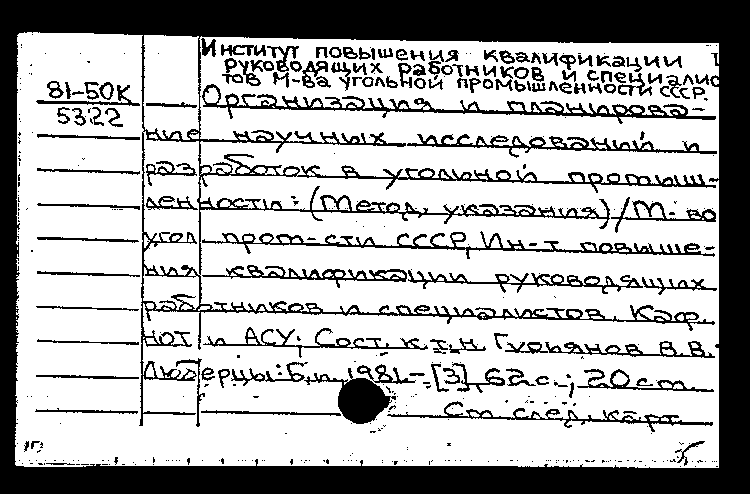 Институт повышения квалификации
руководящих работников и специалис
тов М-ва угольной промышленности СССР
81-50К
5322
Организация и планирова-
ние научных исследований и
разработок в угольной промыш-
ленности: (Метод. указания) / М-во
угол пром-сти СССР, Ин-т повыше-
ния квалификации руководящих
работников и специалистов. Каф.
НОТ и АСУ; Сост. к.т.н. Гурьянов В.В.
Люберцы: Б.и., 1981.- [3], 62 с.; 20 см.
См след. карт